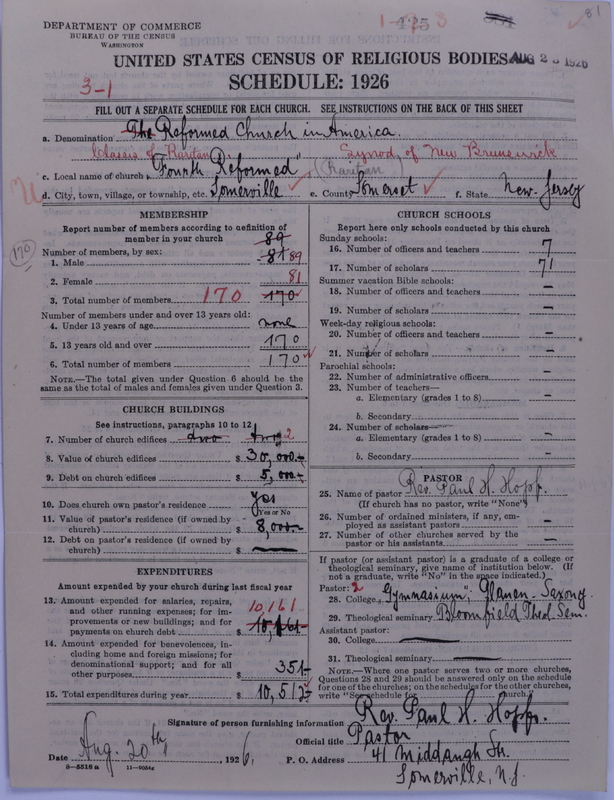 81
1-
DEPARTMENT OF COMMERCE
BUREAU OF THE CENSUS
WASHINGTON
UNITED STATES CENSUS OF RELIGIOUS BODIES
AUG 23 1926
SCHEDULE: 1926
3-1
FILL OUT A SEPARATE SCHEDULE FOR EACH CHURCH. SEE INSTRUCTIONS ON THE BACK OF THIS SHEET
a. Denomination The Reformed Church in America.
Classis of Raritan Synod of New Brunswick
c. Local name of church "Fourth Reformed" (Raritan)
d. City, town, village, or township, etc. Somerville e. County Somerset f. State New-Jersey
MEMBERSHIP
Report number of members according to definition of member in your church
89
Number of members, by sex:
1. Male 81 89
2. Female 81
170
3. Total number of members 170 170
Number of members under and over 13 years old:
4. Under 13 years of age none
5. 13 years old and over 170
6. Total number of members 170
NOTE.—The total given under Question 6 should be the same as the total of males and females given under Question 3.
CHURCH BUILDINGS
See instructions, paragraphs 10 to 12
7. Number of church edifices two two 2
8. Value of church edifices $ 30,000.-
9. Debt on church edifices $ 5,000.-
10. Does church own pastor's residence yes
Yes or No
11. Value of pastor's residence (if owned by church) $ 8,000.-
12. Debt on pastor's residence (if owned by church) $ —
EXPENDITURES
Amount expended by your church during last fiscal year
13. Amount expended for salaries, repairs, and other running expenses; for improvements or new buildings; and for payments on church debt $ 10,161 10,161-
14. Amount expended for benevolences, including home and foreign missions; for denominational support; and for all other purposes $ 351-
15. Total expenditures during year $ 10,512-
CHURCH SCHOOLS
Report here only schools conducted by this church
Sunday schools:
16. Number of officers and teachers 7
17. Number of scholars 71
Summer vacation Bible schools:
18. Number of officers and teachers -
19. Number of scholars -
Week-day religious schools:
20. Number of officers and teachers -
21. Number of scholars -
Parochial schools:
22. Number of administrative officers -
23. Number of teachers—
a. Elementary (grades 1 to 8) -
b. Secondary -
24. Number of scholars—
a. Elementary (grades 1 to 8) -
b. Secondary -
PASTOR
25. Name of pastor Rev. Paul H. Hopf.
(If church has no pastor, write "None")
26. Number of ordained ministers, if any, employed as assistant pastors -
27. Number of other churches served by the pastor or his assistants -
If pastor (or assistant pastor) is a graduate of a college or theological seminary, give name of institution below. (If not a graduate, write "No" in the space indicated.)
Pastor: 2
28. College "Gymnasium", Plauen-Saxony
29. Theological seminary Bloomfield Theol. Sem.
Assistant pastor:
30. College —
31. Theological seminary —
NOTE.—Where one pastor serves two or more churches, Questions 28 and 29 should be answered only on the schedule for one of the churches; on the schedules for the other churches, write "See schedule for church.")
Signature of person furnishing information Rev. Paul H. Hopf.
Official title Pastor
Date Aug. 20th, 1926. P. O. Address 41 Middaugh Str.
Somerville, N.J.
8—5518 a 11—9054